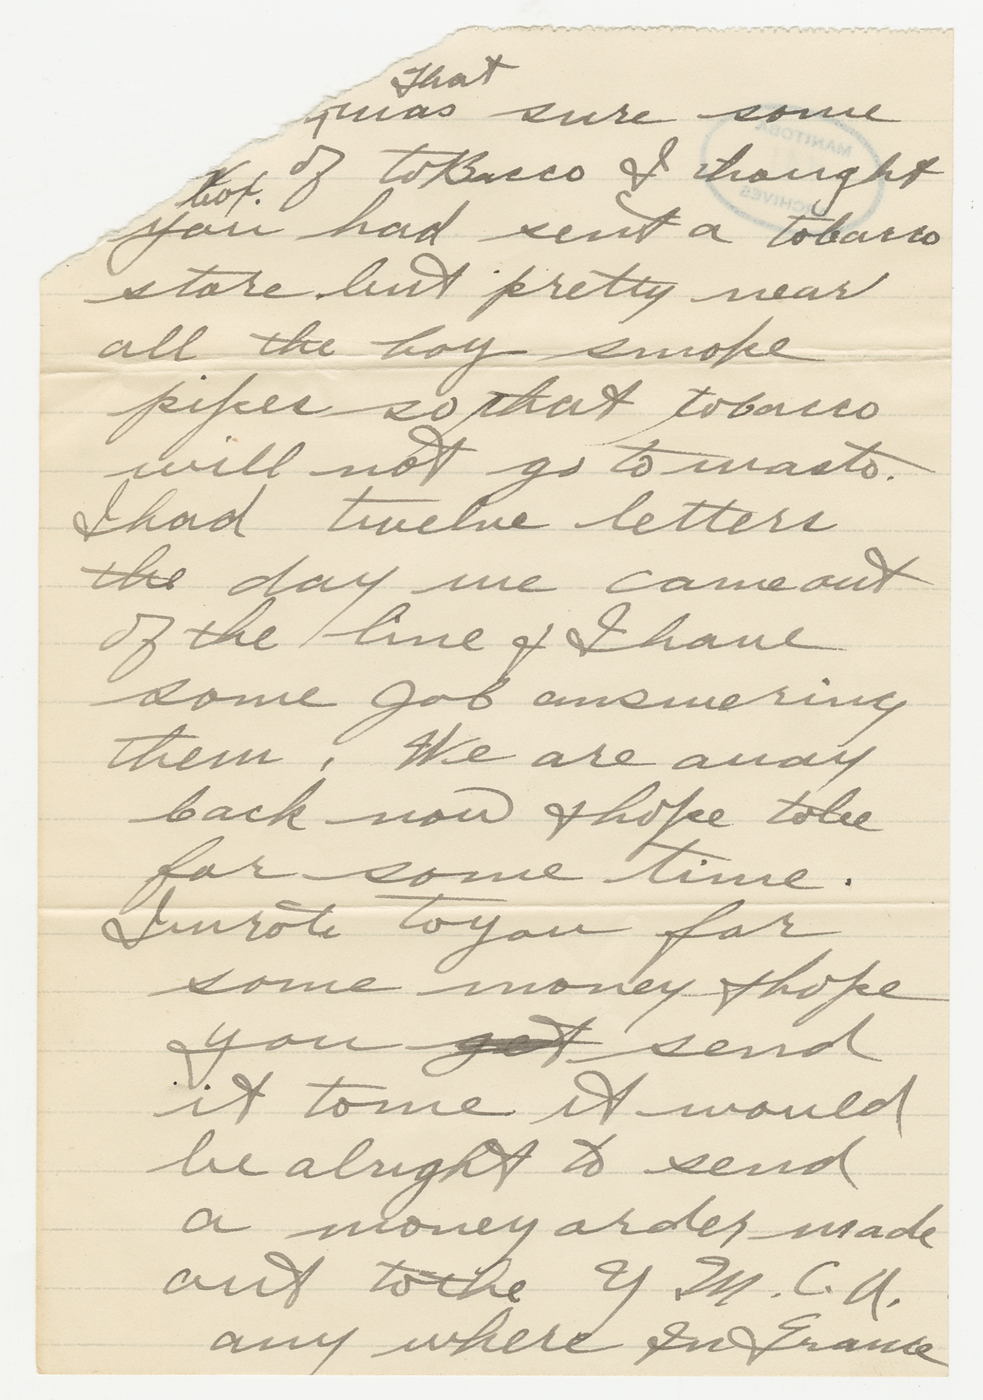 That
was sure some
box. of tobacco I thought
you had sent a tobacco
store but pretty near
all the boy smoke
pipes so that tobacco
will not go to wasto.
I had twelve letters
the day we came out
of the line & I have
some job answering
them. We are away
back now & hope to be
for some time.
I wrote to you for
some money & hope
you get send
it to me it would
be alright to send
a money order made
out to the Y M. C. A.
any where In France
MANITOBA
ARCHIVES